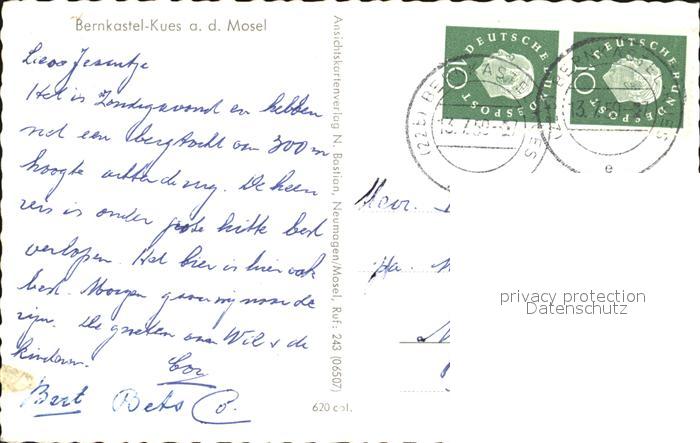 Bernkastel-Kues a. d. Mosel
Het is Zondagavond en hebben
net een bergtocht van 300 m
hoogte achter de rug. De heen
reis is onder grote hitte best
verlopen. Het bier is hier ook
best. Morgen gaan wij naar de
rijn. De groeten aan Wil & de
kinderen.
Bert Bets Co.
Ansichtskartenverlag N. Bastian, Neumagen/Mosel, Ruf: 243 (06507)
620 col.
DEUTSCHE BUNDESPOST
10
DEUTSCHE BUNDESPOST
10
(22b) BERNKASTEL-KUES
13.7.59
(22b) BERNKASTEL-KUES
13.7.59
e
Mevr.
privacy protection
Datenschutz